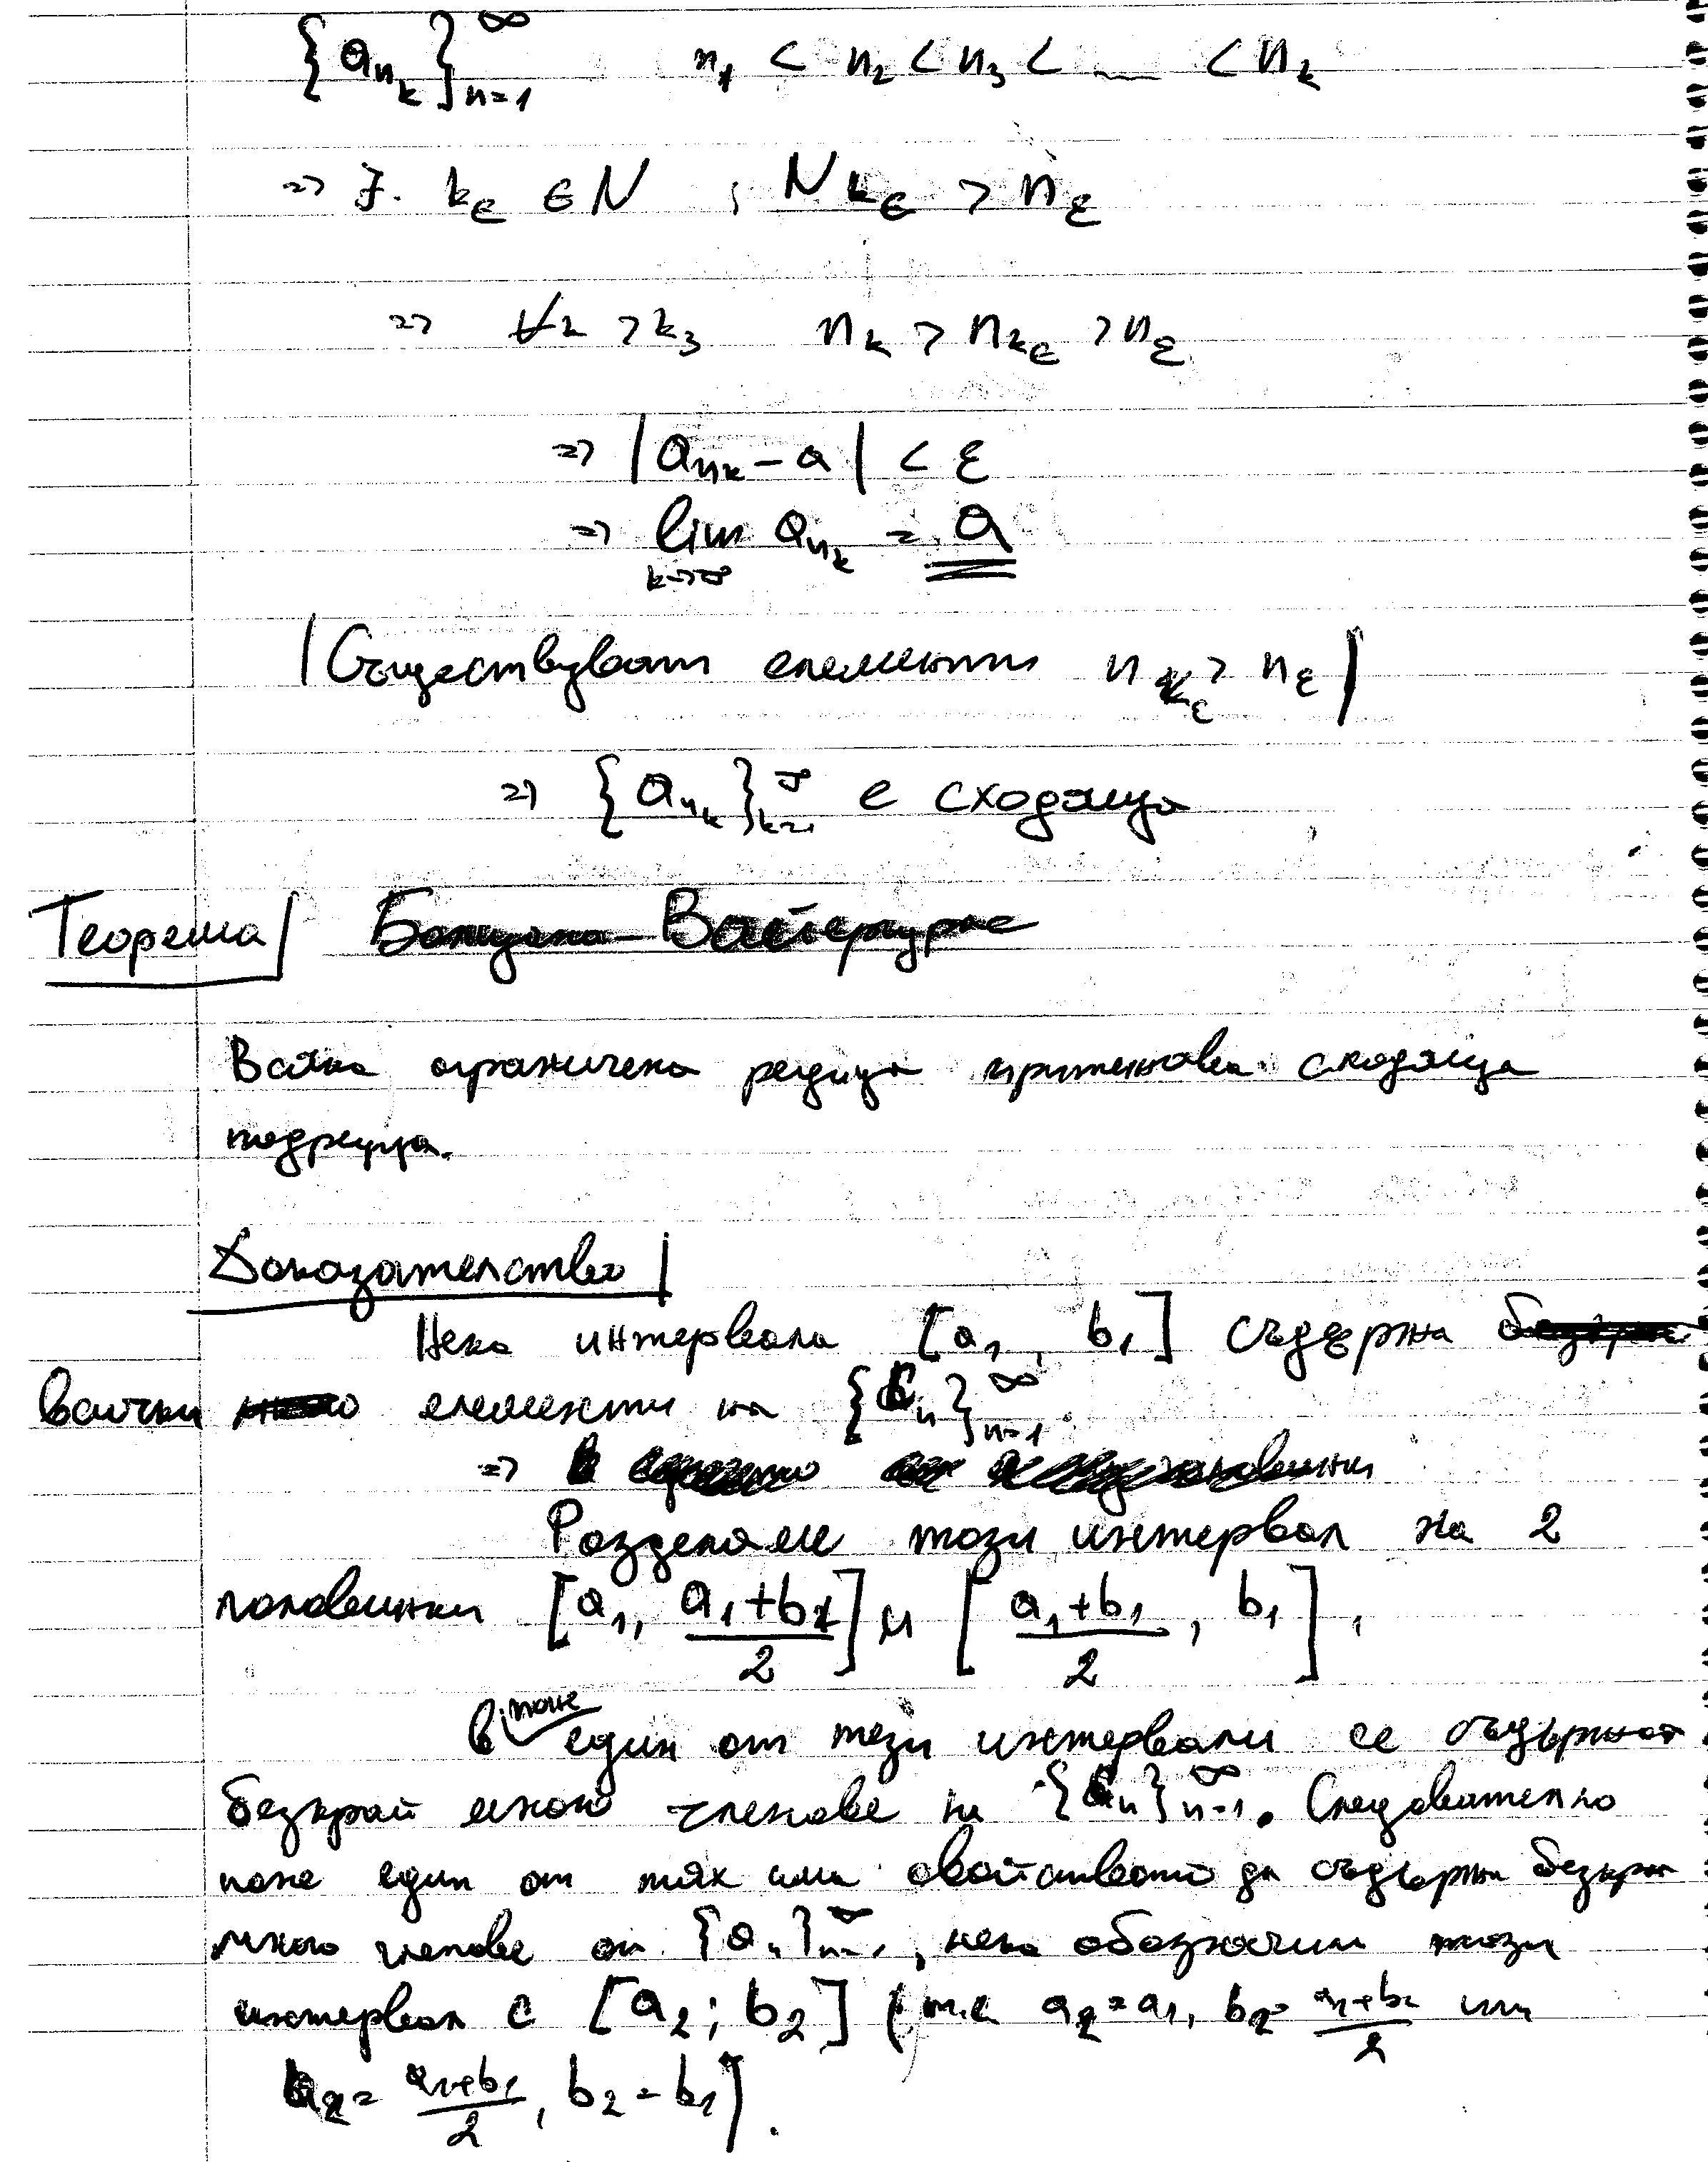 {a_{n_k}}_{n=1}^∞ n_1 < n_2 < n_3 < ... < n_k
=> ∃. k_ε ∈ N , N_{k_ε} > n_ε
=> ∀k > k_3 n_k > n_{k_ε} > n_ε
=> |a_{n_k} - a| < ε
=> lim_{k→∞} a_{n_k} = a
|Съществуват елементи n_{k_ε} > n_ε|
=> {a_{n_k}}_{k=1}^∞ е сходяща
Теорема| Болцано-Вайерщрас
Всяка ограничена редица притежава сходяща
подредица.
Доказателство|
Нека интервала [a_1, b_1] съдържа
всички елементи на {a_n}_{n=1}^∞.
=>
Разделяме този интервал на 2
половинки [a_1, (a_1+b_1)/2] и [(a_1+b_1)/2, b_1],
В поне един от тези интервали се съдържат
безкрай много членове на {a_n}_{n=1}^∞. Следователно
поне един от тях има свойството да съдържа безкрай
много членове от {a_n}_{n=1}^∞, нека обозначим този
интервал с [a_2; b_2] (т.е. a_2=a_1, b_2=(a_1+b_1)/2 или
a_2=(a_1+b_1)/2, b_2=b_1).